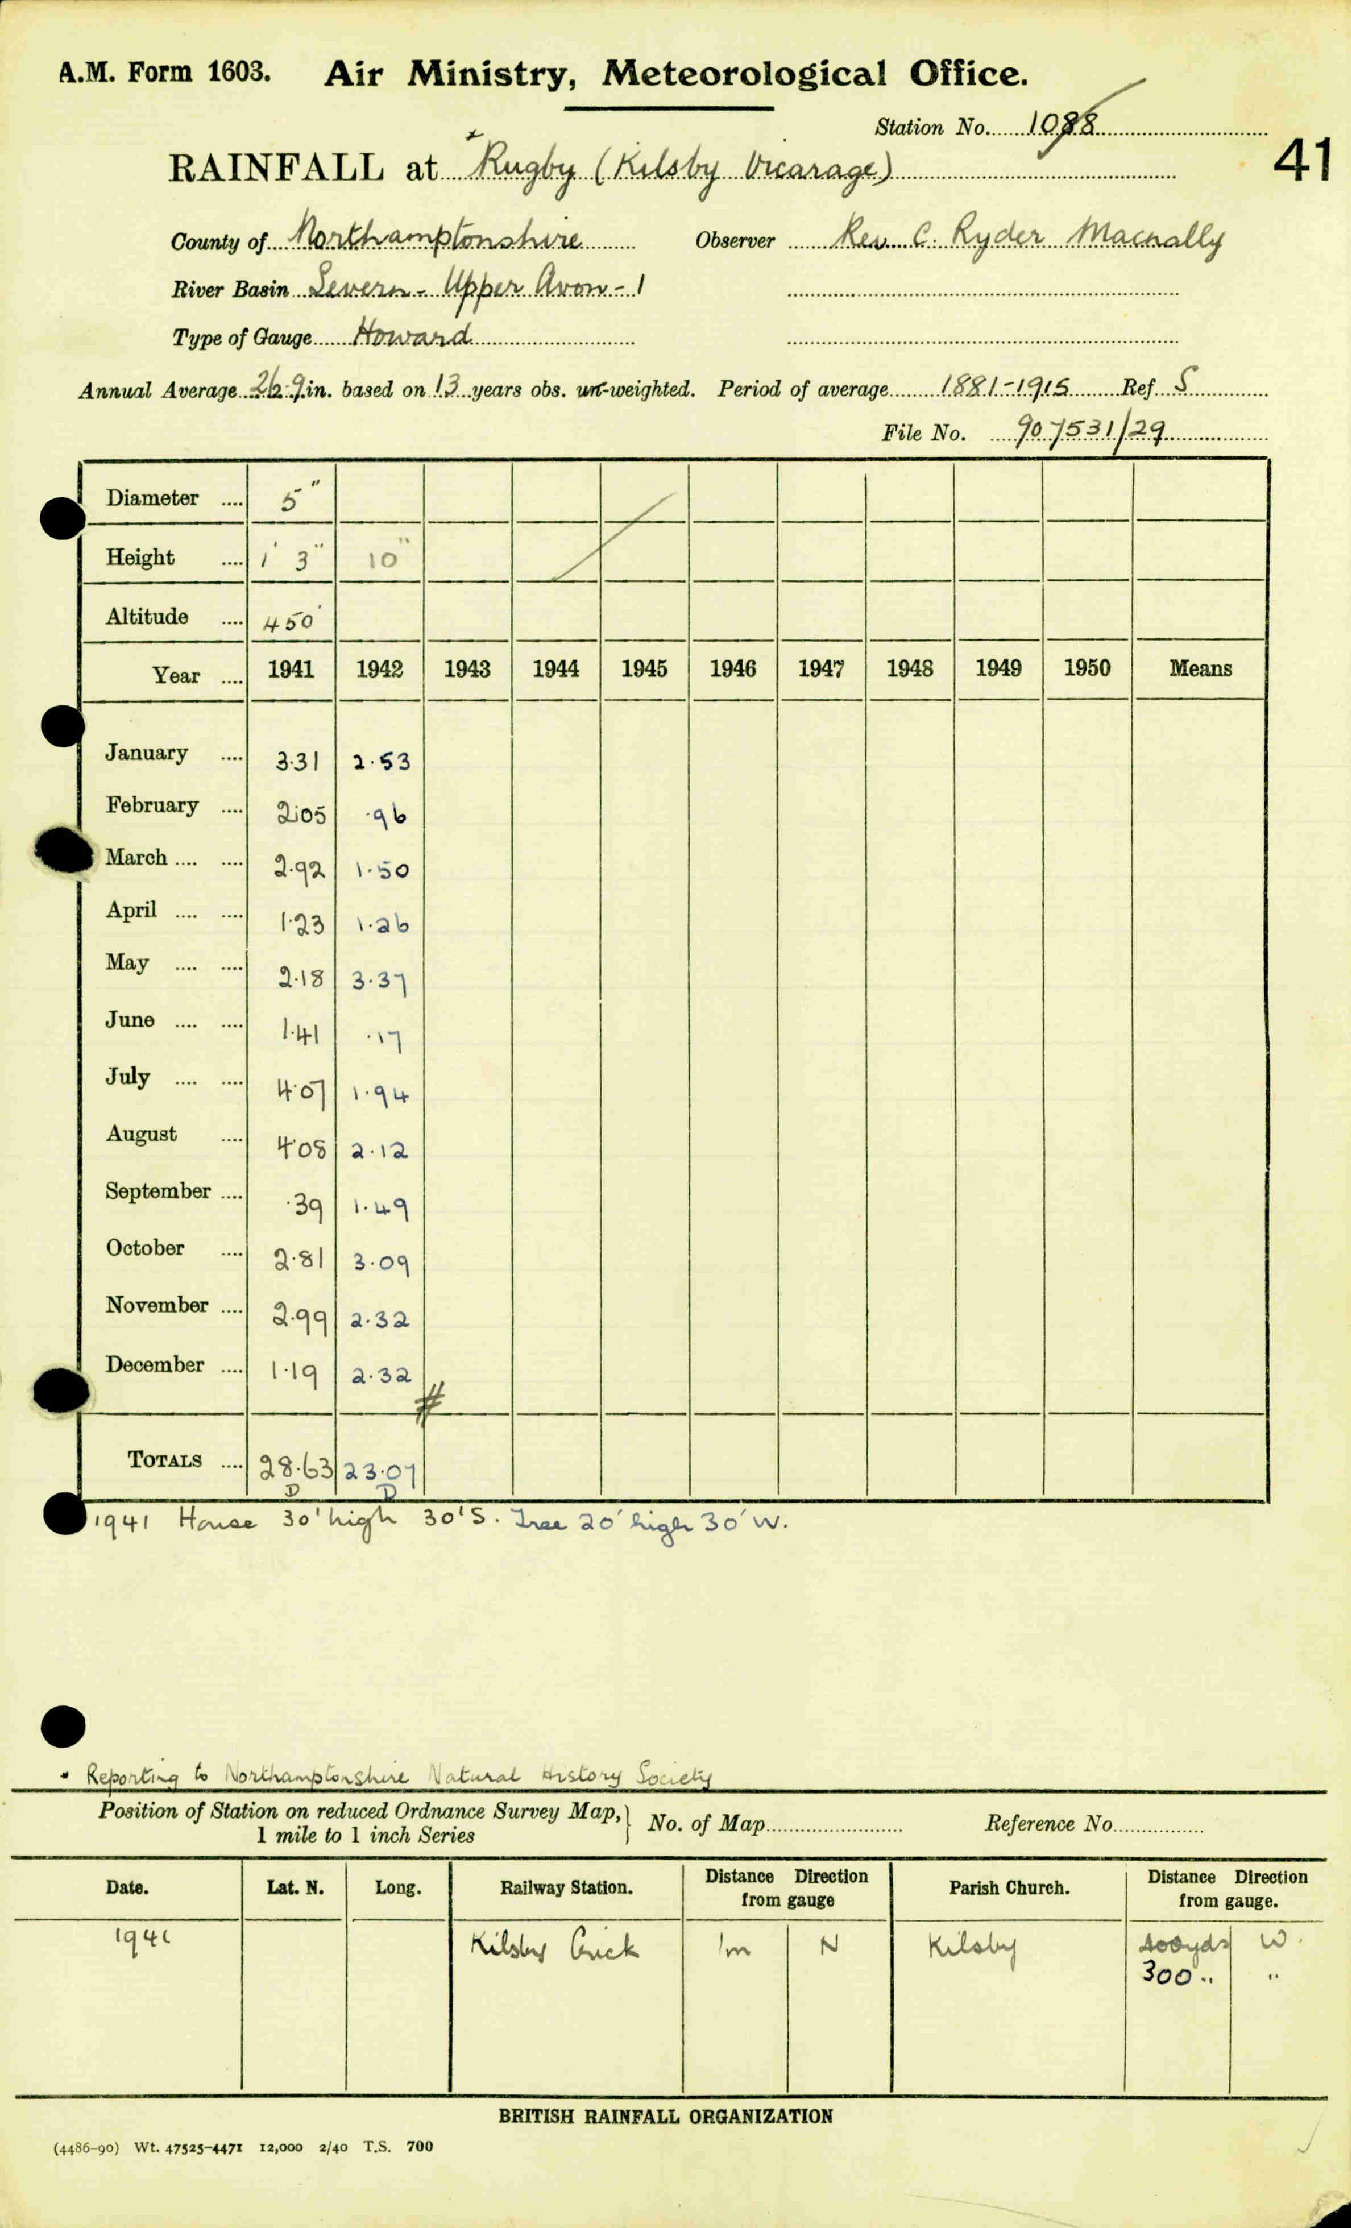 A.M. Form 1603. Air Ministry, Meteorological Office.
Station No. 1088
41
RAINFALL at *Rugby (Kilsby Vicarage)
County of Northamptonshire Observer Rev. C. Ryder Macnally
River Basin Severn - Upper Avon - 1
Type of Gauge Howard
Annual Average in. based on 13 years obs. un-weighted. Period of average 1881-1915 Ref. S
File No. 907531/29
Diameter .... 5"
Height .... 1' 3" 10"
Altitude .... 450'
Year .... 1941 1942 1943 1944 1945 1946 1947 1948 1949 1950 Means
January .... 3.31 2.53
February .... 2.05 .96
March .... .... 2.92 1.50
April .... .... 1.23 1.26
May .... .... 2.18 3.37
June .... .... 1.41 .17
July .... .... 4.07 1.94
August .... 4.08 2.12
September .... .39 1.49
October .... 2.81 3.09
November .... 2.99 2.32
December .... 1.19 2.32
#
TOTALS .... 28.63 23.07
D D
1941 House 30' high 30' S. Tree 20' high 30' W.
* Reporting to Northamptonshire Natural History Society
Position of Station on reduced Ordnance Survey Map, } No. of Map Reference No.
1 mile to 1 inch Series
Date. Lat. N. Long. Railway Station. Distance Direction from gauge Parish Church. Distance Direction from gauge.
1941 Kilsby Crick 1m N Kilsby 400yds W.
300 " "
BRITISH RAINFALL ORGANIZATION
(4486-90) Wt. 47525-4471 12,000 2/40 T.S. 700